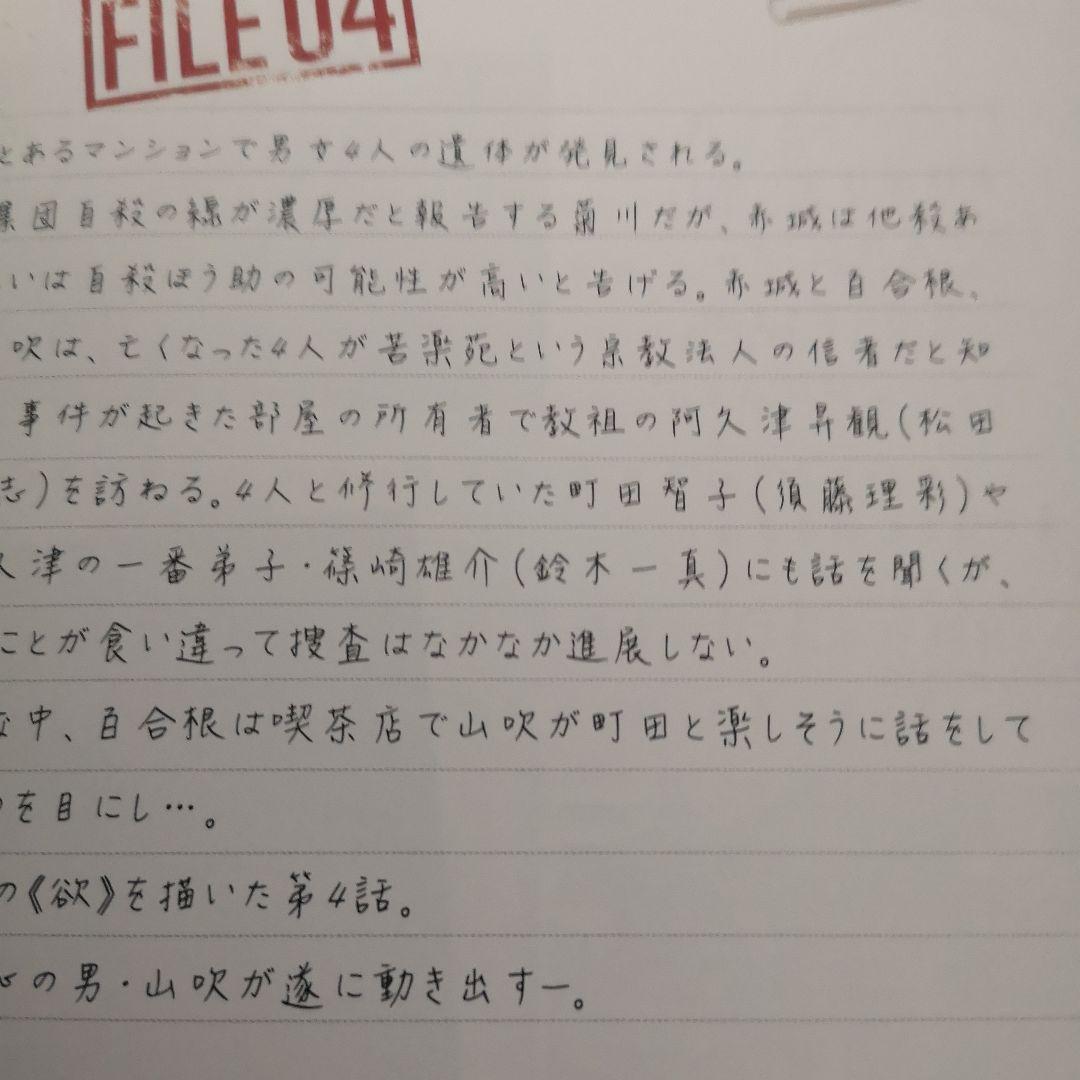 FILE 04
とあるマンションで男女4人の遺体が発見される。
団自殺の線が濃厚だと報告する菊川だが、赤城は他殺あ
いは自殺ほう助の可能性が高いと告げる。赤城と百合根、
吹は、亡くなった4人が苦楽苑という宗教法人の信者だと知
事件が起きた部屋の所有者で教祖の阿久津昇観(松田
志)を訪ねる。4人と修行していた町田智子(須藤理彩)や
久津の一番弟子・篠崎雄介(鈴木一真)にも話を聞くが、
ことが食い違って捜査はなかなか進展しない。
な中、百合根は喫茶店で山吹が町田と楽しそうに話をして
を目にし…。
の《欲》を描いた第4話。
の男・山吹が遂に動き出すー。